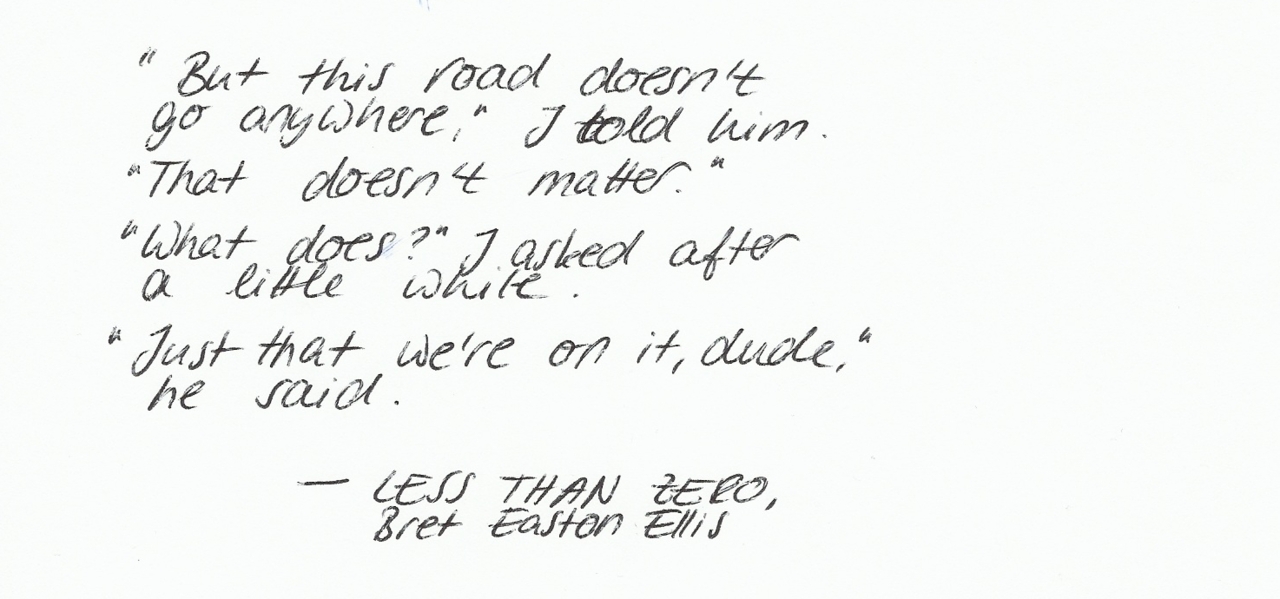 "But this road doesn't
go anywhere," I told him.
"That doesn't matter."
"What does?" I asked after
a little while.
"Just that we're on it, dude,"
he said.
— LESS THAN ZERO,
Bret Easton Ellis